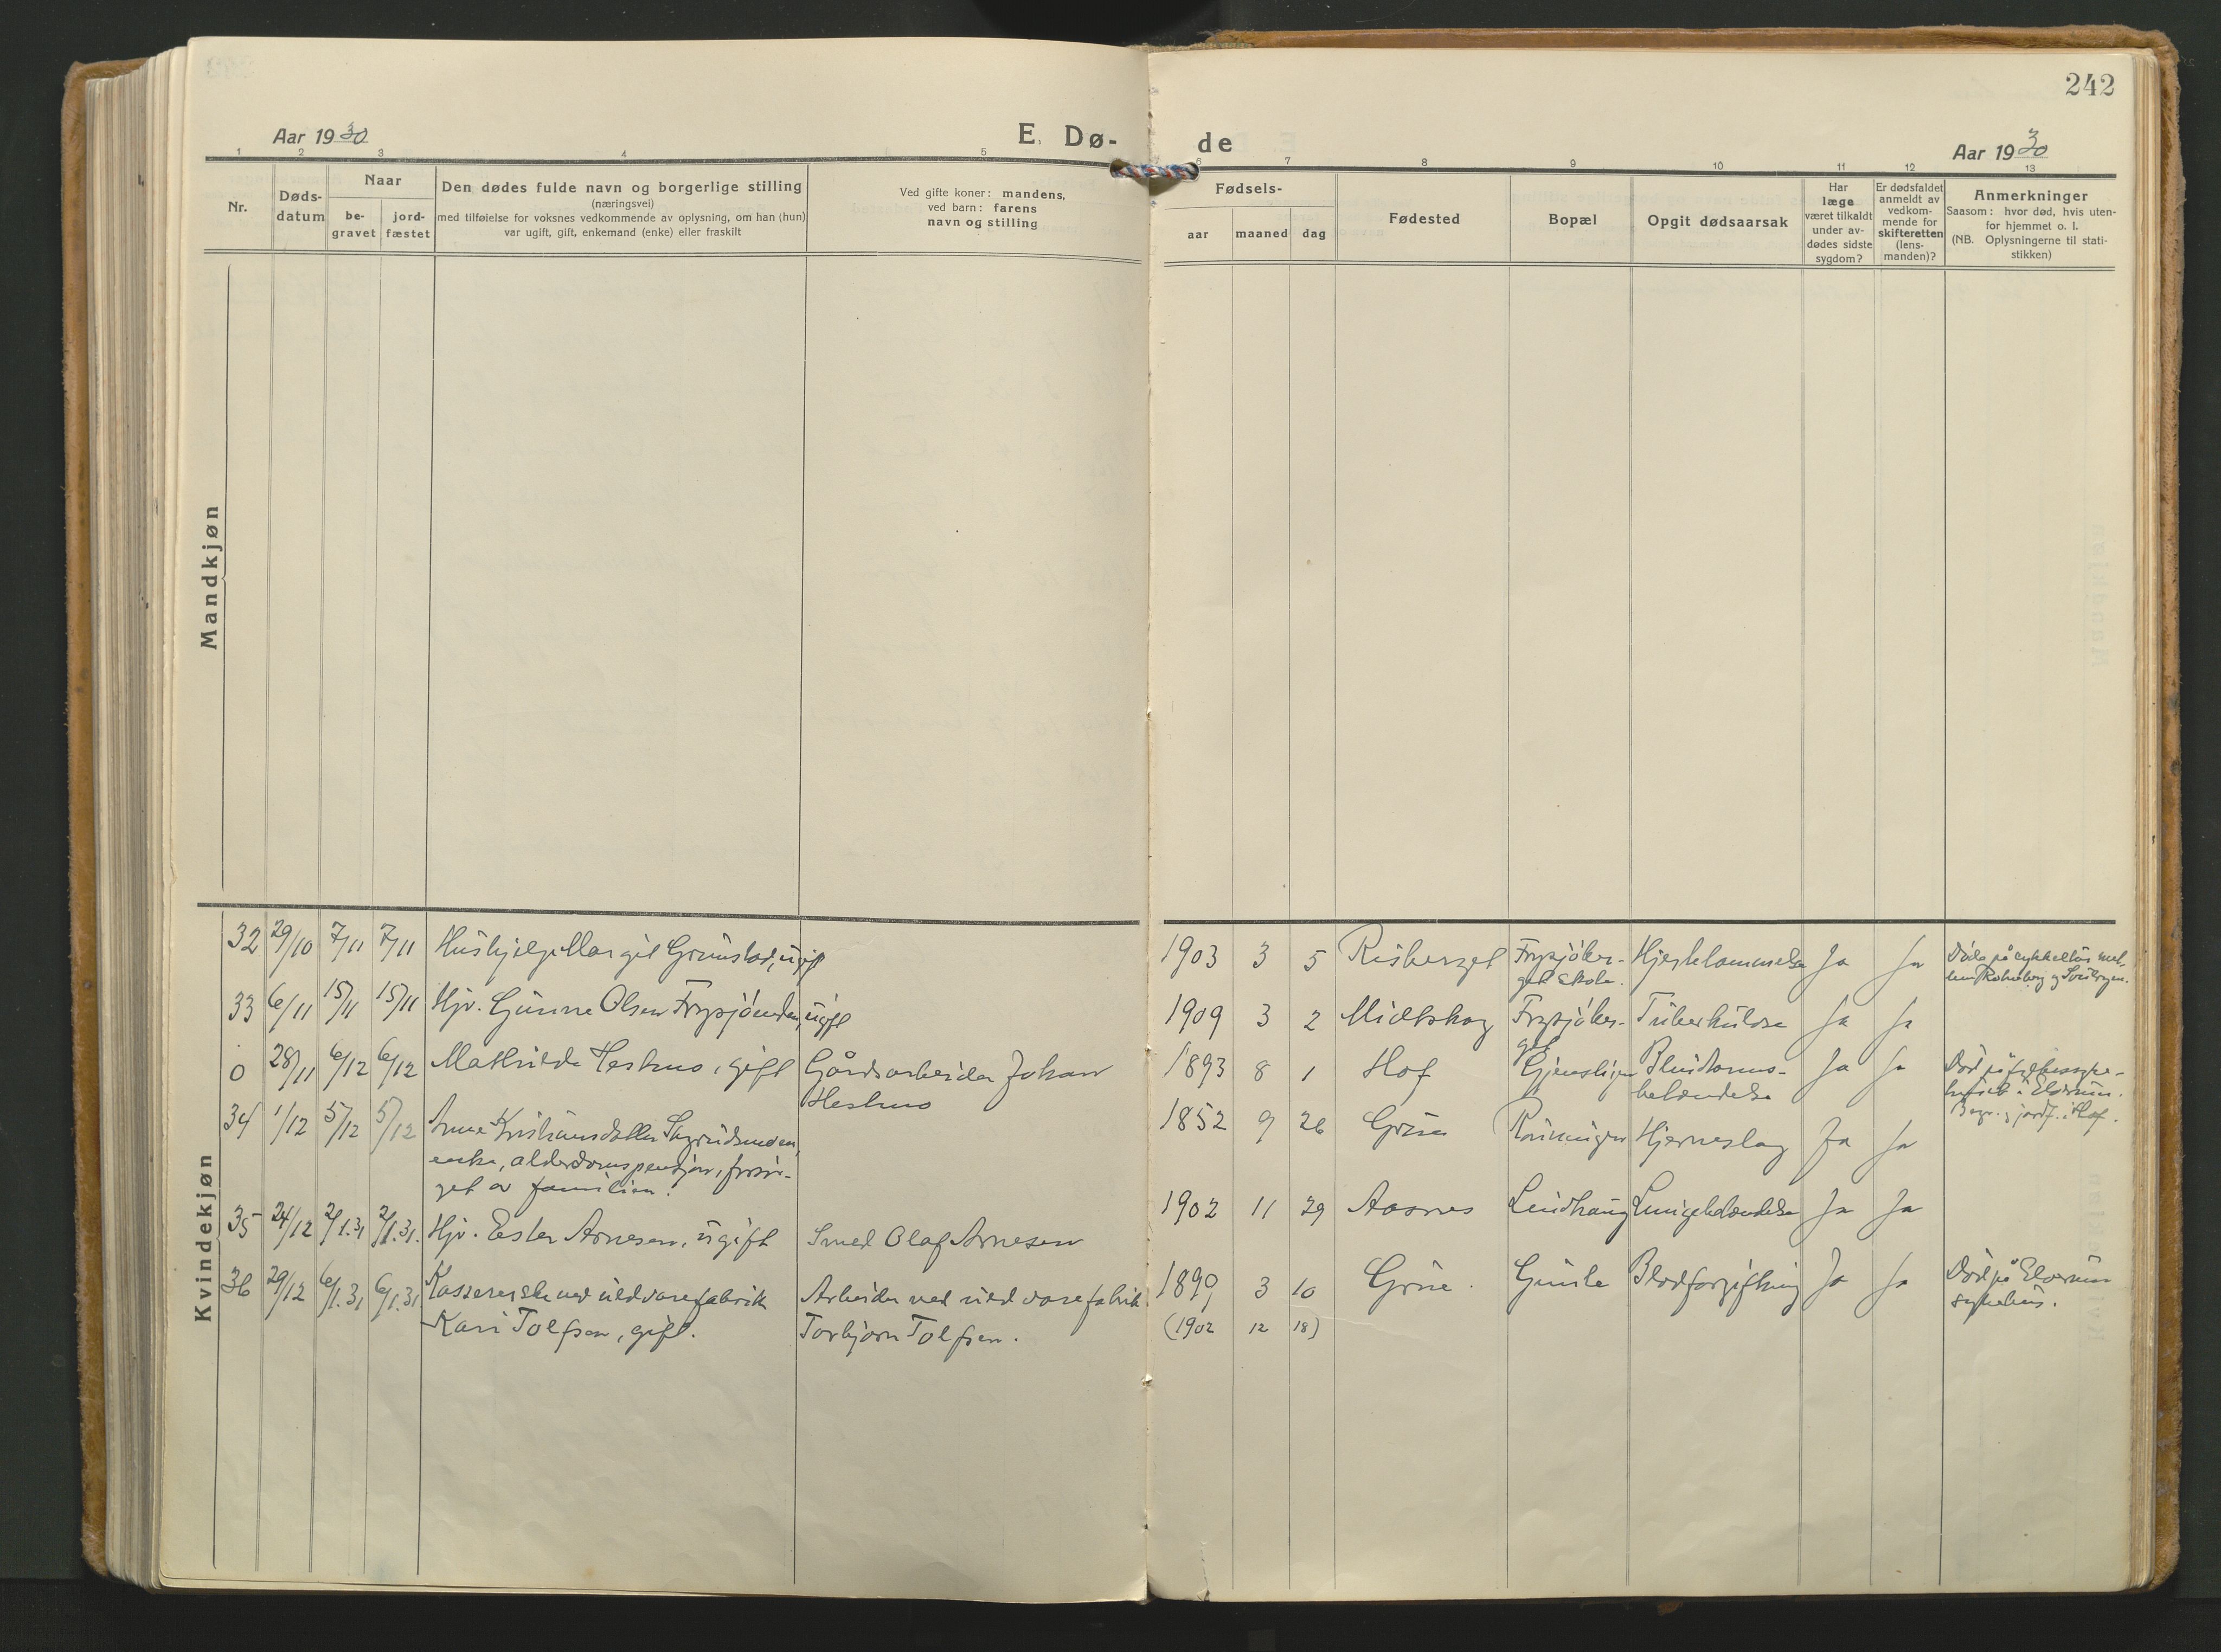 242
Aar 1930
E. Dø-
de
Aar 1930
1 2 3 4 5 6 7 8 9 10 11 12 13
Nr.
Døds-
datum
Naar
be-
gravet
jord-
fæstet
Den dødes fulde navn og borgerlige stilling
(næringsvei)
med tilføielse for voksnes vedkommende av oplysning, om han (hun)
var ugift, gift, enkemand (enke) eller fraskilt
Ved gifte koner: mandens,
ved barn: farens
navn og stilling
Fødsels-
aar maaned dag
Fødested
Bopæl
Opgit dødsaarsak
Har
læge
været tilkaldt
under av-
dødes sidste
sygdom?
Er dødsfaldet
anmeldt av
vedkom-
mende for
skifteretten
(lens-
manden)?
Anmerkninger
Saasom: hvor død, hvis uten-
for hjemmet o. l.
(NB. Oplysningerne til stati-
stikken)
Mandkjøn
Kvindekjøn
32 29/10 7/11 7/11 Hushjelp Margit Grunstad, ugift 1903 3 5 Risberget Frysjøber- Hjertelammelse Ja Ja
get skole.
33 6/11 15/11 15/11 Hjv. Gunne Olsen Frysjøenden, ugift 1909 3 2 Midtskog Frysjøber- Tuberkulose Ja Ja
get
0 28/11 6/12 6/12 Mathilde Heskno, gift Gårdsarbeider Johan 1893 8 1 Hof Blindtarms- Ja Ja
Heskno betændelse
Begr. og jordf. i Hof.
34 1/12 5/12 5/12 Anne Kristiansdatter 1852 9 26 Grue Rønningen Hjerneslag Ja Ja
enke, alderdomspensjon, forsør-
get av familien.
35 24/12 2/1.31 2/1.31. Hjv. Ester Arnesen, ugift Smed Olaf Arnesen 1902 11 29 Aasnes Lindhaug Lungebetændelse Ja Ja
36 29/12 6/1.31 6/1.31 Kassererske ved uldvarefabrik Arbeider ved uldvarefabrik 1899 3 10 Grue. Blodforgiftning Ja Ja Død på Elverum
Kari Tolfsen, gift. Torbjørn Tolfsen. (1902 12 18) sykehus.